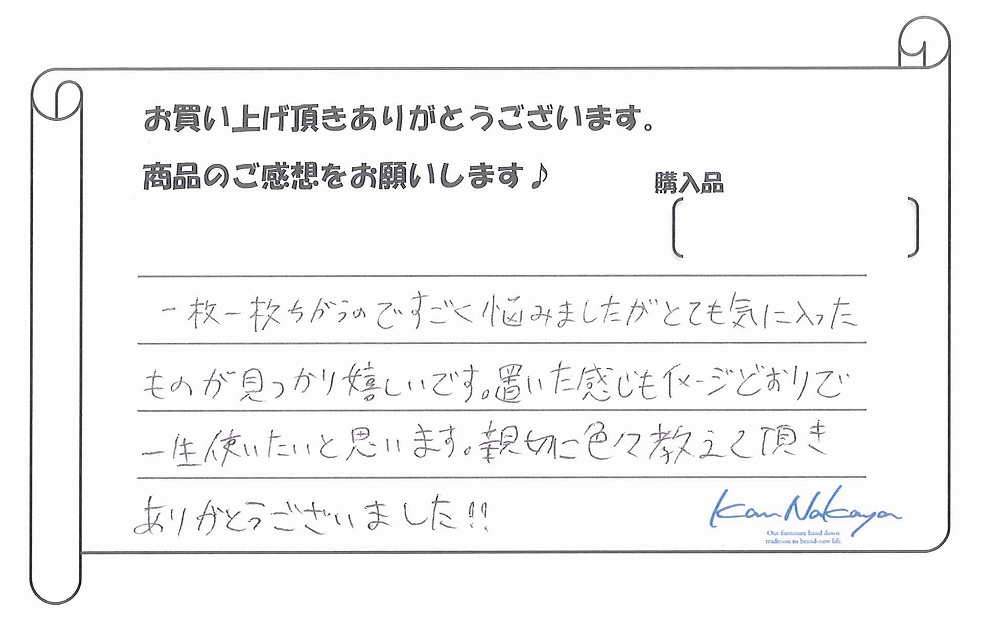 お買い上げ頂きありがとうございます。
商品のご感想をお願いします♪
購入品
一枚一枚ちがうのですごく悩みましたがとても気に入った
ものが見つかり嬉しいです。置いた感じもイメージどおりで
一生使いたいと思います。親切に色々教えて頂き
ありがとうございました!!
Kan Nakaya
Our furniture hand down
tradition to brand-new life.